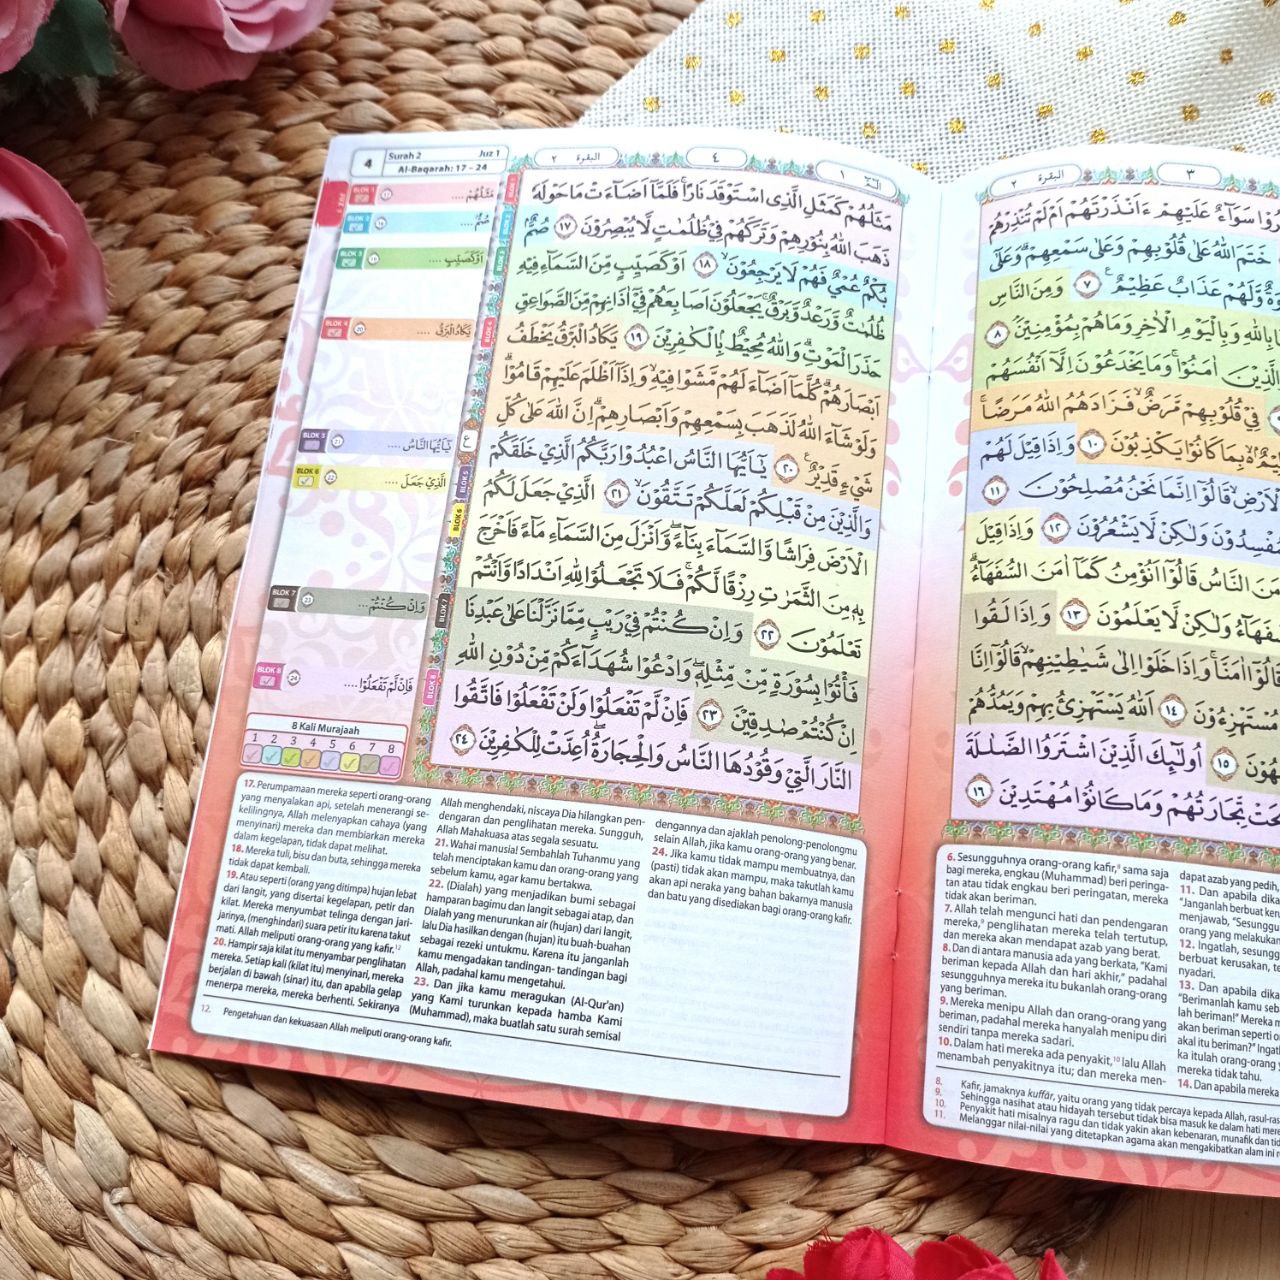 4
Surah 2
Juz 1
Al-Baqarah: 17 - 24
البقرة ٢
٤
١
BLOK 1
مَثَلُهُمْ ....
BLOK 2
صُمٌّ ....
BLOK 3
اَوْ كَصَيِّبٍ ....
BLOK 4
يَكَادُ الْبَرْقُ ....
BLOK 5
يٰٓاَيُّهَا النَّاسُ ....
BLOK 6
الَّذِيْ جَعَلَ ....
BLOK 7
وَاِنْ كُنْتُمْ ....
BLOK 8
فَاِنْ لَّمْ تَفْعَلُوْا ....
8 Kali Murajaah
1 2 3 4 5 6 7 8
مَثَلُهُمْ كَمَثَلِ الَّذِى اسْتَوْقَدَ نَارًاۚ فَلَمَّآ اَضَاۤءَتْ مَا حَوْلَهٗ
ذَهَبَ اللّٰهُ بِنُوْرِهِمْ وَتَرَكَهُمْ فِيْ ظُلُمٰتٍ لَّا يُبْصِرُوْنَ ١٧ صُمٌّۢ
بُكْمٌ عُمْيٌ فَهُمْ لَا يَرْجِعُوْنَۙ ١٨ اَوْ كَصَيِّبٍ مِّنَ السَّمَاۤءِ فِيْهِ
ظُلُمٰتٌ وَّرَعْدٌ وَّبَرْقٌۚ يَجْعَلُوْنَ اَصَابِعَهُمْ فِيْٓ اٰذَانِهِمْ مِّنَ الصَّوَاعِقِ
حَذَرَ الْمَوْتِۗ وَاللّٰهُ مُحِيْطٌۢ بِالْكٰفِرِيْنَ ١٩ يَكَادُ الْبَرْقُ يَخْطَفُ
اَبْصَارَهُمْۗ كُلَّمَآ اَضَاۤءَ لَهُمْ مَّشَوْا فِيْهِۙ وَاِذَآ اَظْلَمَ عَلَيْهِمْ قَامُوْاۗ
وَلَوْ شَاۤءَ اللّٰهُ لَذَهَبَ بِسَمْعِهِمْ وَاَبْصَارِهِمْۗ اِنَّ اللّٰهَ عَلٰى كُلِّ
شَيْءٍ قَدِيْرٌ ٢٠ يٰٓاَيُّهَا النَّاسُ اعْبُدُوْا رَبَّكُمُ الَّذِيْ خَلَقَكُمْ
وَالَّذِيْنَ مِنْ قَبْلِكُمْ لَعَلَّكُمْ تَتَّقُوْنَۙ ٢١ الَّذِيْ جَعَلَ لَكُمُ
الْاَرْضَ فِرَاشًا وَّالسَّمَاۤءَ بِنَاۤءًۖ وَّاَنْزَلَ مِنَ السَّمَاۤءِ مَاۤءً فَاَخْرَجَ
بِهٖ مِنَ الثَّمَرٰتِ رِزْقًا لَّكُمْۚ فَلَا تَجْعَلُوْا لِلّٰهِ اَنْدَادًا وَّاَنْتُمْ
تَعْلَمُوْنَ ٢٢ وَاِنْ كُنْتُمْ فِيْ رَيْبٍ مِّمَّا نَزَّلْنَا عَلٰى عَبْدِنَا
فَأْتُوْا بِسُوْرَةٍ مِّنْ مِّثْلِهٖۖ وَادْعُوْا شُهَدَاۤءَكُمْ مِّنْ دُوْنِ اللّٰهِ
اِنْ كُنْتُمْ صٰدِقِيْنَ ٢٣ فَاِنْ لَّمْ تَفْعَلُوْا وَلَنْ تَفْعَلُوْا فَاتَّقُوا
النَّارَ الَّتِيْ وَقُوْدُهَا النَّاسُ وَالْحِجَارَةُۖ اُعِدَّتْ لِلْكٰفِرِيْنَ ٢٤
17. Perumpamaan mereka seperti orang-orang
yang menyalakan api, setelah menerangi se-
kelilingnya, Allah melenyapkan cahaya (yang
menyinari) mereka dan membiarkan mereka
dalam kegelapan, tidak dapat melihat.
18. Mereka tuli, bisu dan buta, sehingga mereka
tidak dapat kembali.
19. Atau seperti (orang yang ditimpa) hujan lebat
dari langit, yang disertai kegelapan, petir dan
kilat. Mereka menyumbat telinga dengan jari-
jarinya, (menghindari) suara petir itu karena takut
mati. Allah meliputi orang-orang yang kafir.¹²
20. Hampir saja kilat itu menyambar penglihatan
mereka. Setiap kali (kilat itu) menyinari, mereka
berjalan di bawah (sinar) itu, dan apabila gelap
menerpa mereka, mereka berhenti. Sekiranya
Allah menghendaki, niscaya Dia hilangkan pen-
dengaran dan penglihatan mereka. Sungguh,
Allah Mahakuasa atas segala sesuatu.
21. Wahai manusia! Sembahlah Tuhanmu yang
telah menciptakan kamu dan orang-orang yang
sebelum kamu, agar kamu bertakwa.
22. (Dialah) yang menjadikan bumi sebagai
hamparan bagimu dan langit sebagai atap, dan
Dialah yang menurunkan air (hujan) dari langit,
lalu Dia hasilkan dengan (hujan) itu buah-buahan
sebagai rezeki untukmu. Karena itu janganlah
kamu mengadakan tandingan- tandingan bagi
Allah, padahal kamu mengetahui.
23. Dan jika kamu meragukan (Al-Qur'an)
yang Kami turunkan kepada hamba Kami
(Muhammad), maka buatlah satu surah semisal
dengannya dan ajaklah penolong-penolongmu
selain Allah, jika kamu orang-orang yang benar.
24. Jika kamu tidak mampu membuatnya, dan
(pasti) tidak akan mampu, maka takutlah kamu
akan api neraka yang bahan bakarnya manusia
dan batu yang disediakan bagi orang-orang kafir.
12. Pengetahuan dan kekuasaan Allah meliputi orang-orang kafir.
البقرة ٢
٣
سَوَاۤءٌ عَلَيْهِمْ ءَاَنْذَرْتَهُمْ اَمْ لَمْ تُنْذِرْهُمْ
خَتَمَ اللّٰهُ عَلٰى قُلُوْبِهِمْ وَعَلٰى سَمْعِهِمْۗ وَعَلٰٓى
وَّلَهُمْ عَذَابٌ عَظِيْمٌ ٧ وَمِنَ النَّاسِ
بِاللّٰهِ وَبِالْيَوْمِ الْاٰخِرِ وَمَا هُمْ بِمُؤْمِنِيْنَۘ ٨
الَّذِيْنَ اٰمَنُوْاۚ وَمَا يَخْدَعُوْنَ اِلَّآ اَنْفُسَهُمْ
فِيْ قُلُوْبِهِمْ مَّرَضٌۙ فَزَادَهُمُ اللّٰهُ مَرَضًاۚ
بِمَا كَانُوْا يَكْذِبُوْنَ ١٠ وَاِذَا قِيْلَ لَهُمْ
الْاَرْضِۙ قَالُوْٓا اِنَّمَا نَحْنُ مُصْلِحُوْنَ ١١
وَلٰكِنْ لَّا يَشْعُرُوْنَ ١٢ وَاِذَا قِيْلَ
النَّاسُ قَالُوْٓا اَنُؤْمِنُ كَمَآ اٰمَنَ السُّفَهَاۤءُۗ
وَلٰكِنْ لَّا يَعْلَمُوْنَ ١٣ وَاِذَا لَقُوا
اٰمَنَّاۚ وَاِذَا خَلَوْا اِلٰى شَيٰطِيْنِهِمْۙ قَالُوْٓا اِنَّا
١٤ اَللّٰهُ يَسْتَهْزِئُ بِهِمْ وَيَمُدُّهُمْ
١٥ اُولٰۤىِٕكَ الَّذِيْنَ اشْتَرَوُا الضَّلٰلَةَ
تِّجَارَتُهُمْ وَمَا كَانُوْا مُهْتَدِيْنَ ١٦
6. Sesungguhnya orang-orang kafir,⁸ sama saja
bagi mereka, engkau (Muhammad) beri peringa-
tan atau tidak engkau beri peringatan, mereka
tidak akan beriman.
7. Allah telah mengunci hati dan pendengaran
mereka,⁹ penglihatan mereka telah tertutup,
dan mereka akan mendapat azab yang berat.
8. Dan di antara manusia ada yang berkata, "Kami
beriman kepada Allah dan hari akhir," padahal
sesungguhnya mereka itu bukanlah orang-orang
yang beriman.
9. Mereka menipu Allah dan orang-orang yang
beriman, padahal mereka hanyalah menipu diri
sendiri tanpa mereka sadari.
10. Dalam hati mereka ada penyakit,¹⁰ lalu Allah
menambah penyakitnya itu; dan mereka men-
dapat azab yang pedih,
11. Dan apabila dika
"Janganlah berbuat
menjawab, "Sesunggu
orang yang melakukan
12. Ingatlah, sesungg
berbuat kerusakan, te
nyadari.
13. Dan apabila dika
"Berimanlah kamu seb
lah beriman!" Mereka
akan beriman seperti
akal itu beriman?" Ingatl
ka itulah orang-orang
mereka tidak tahu.
14. Dan apabila mereka
8. Kafir, jamaknya kuffār, yaitu orang yang tidak percaya kepada Allah, rasul-ras
9. Sehingga nasihat atau hidayah tersebut tidak bisa masuk ke dalam hati mere
10. Penyakit hati misalnya ragu dan tidak yakin akan kebenaran, munafik dan
11. Melanggar nilai-nilai yang ditetapkan agama akan mengakibatkan alam ini